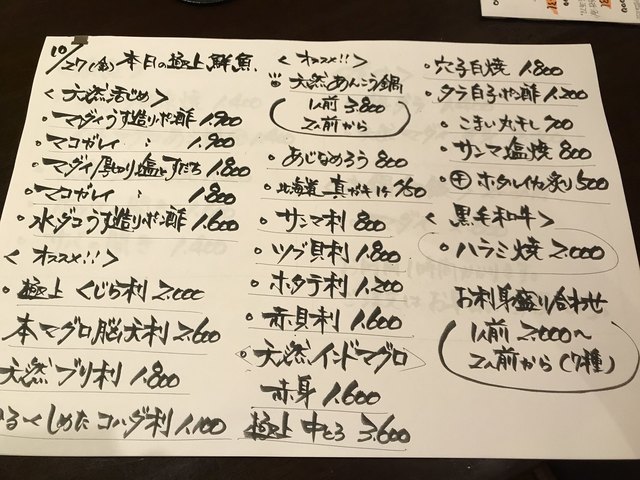 10/27(金) 本日の極上鮮魚
＜天然活じめ＞
・マダイうす造りポン酢 1,900
・マコガレイ 〃 1,900
・マダイ厚切り塩とすだち 1,800
・マコガレイ 〃 1,800
・水ダコうす造りポン酢 1,600
＜オススメ!!＞
・極上くじら刺 2,000
本マグロ脳天刺 2,600
天然ブリ刺 1,800
るくしめたコハダ刺 1,100
＜オススメ!!＞
天然あんこう鍋
1人前 3,800
2人前から
・あじなめろう 800
・北海道真ガキ1ヶ 750
・サンマ刺 800
・ツブ貝刺 1,800
・ホタテ刺 1,200
・赤貝刺 1,600
・天然インドマグロ
赤身 1,600
極上中とろ 3,600
・穴子白焼 1,800
・タラ白子ポン酢 1,200
・こまい丸干し 700
・サンマ塩焼 800
・生ホタルイカ炙り 500
＜黒毛和牛＞
・ハラミ焼 2,000
お刺身盛り合わせ
1人前 2,000〜
2人前から(7種)